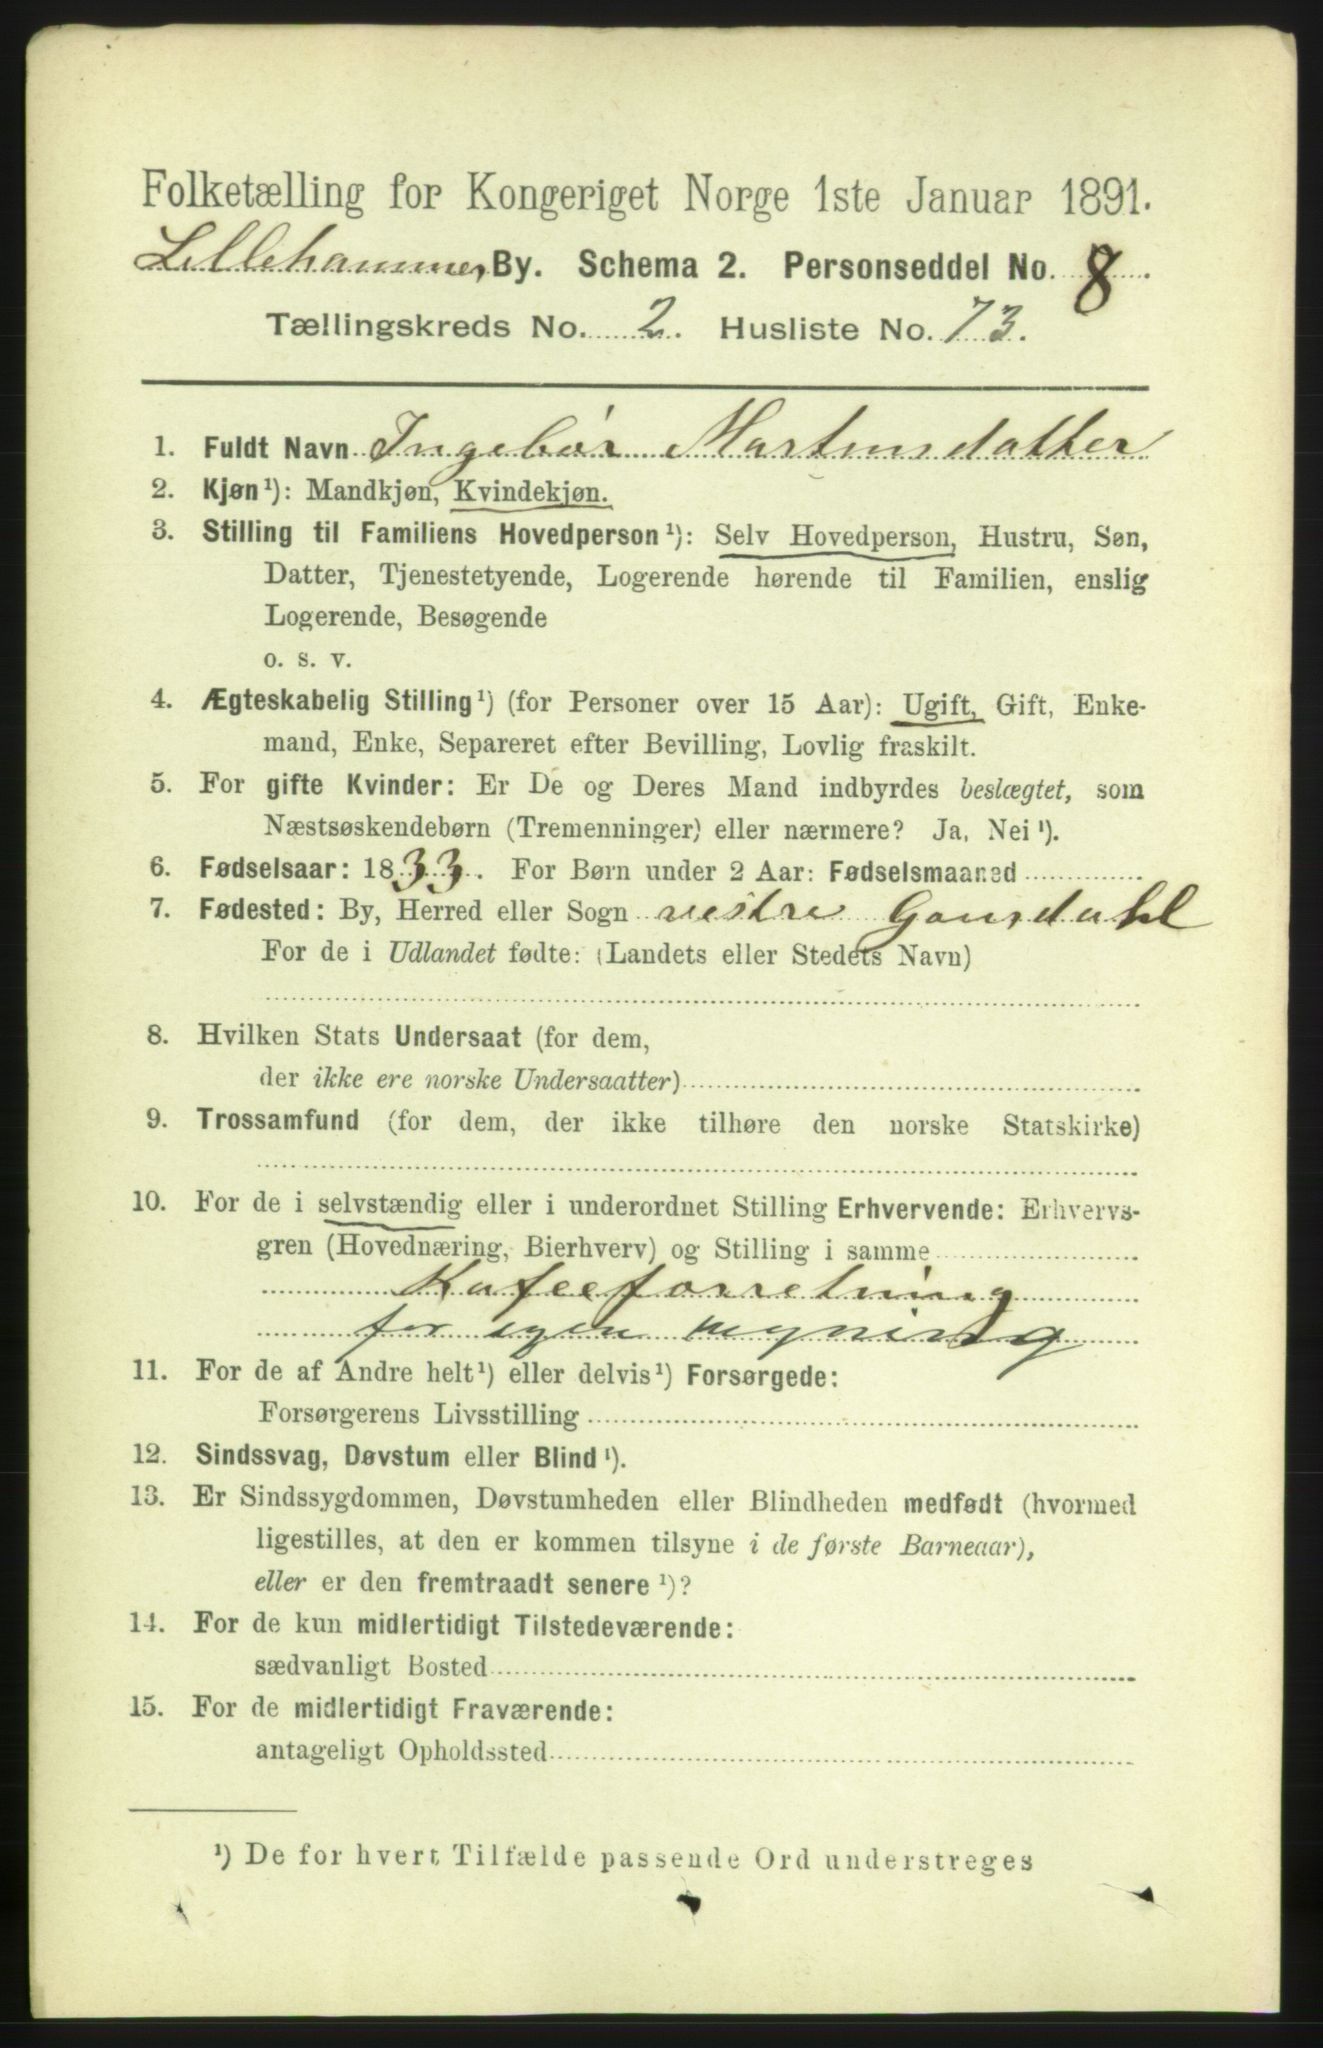 Folketælling for Kongeriget Norge 1ste Januar 1891.
Lillehammer By. Schema 2. Personseddel No. 8
Tællingskreds No. 2. Husliste No. 73.
1. Fuldt Navn Ingebør Martinsdatter
2. Kjøn¹): Mandkjøn, Kvindekjøn.
3. Stilling til Familiens Hovedperson¹): Selv Hovedperson, Hustru, Søn,
Datter, Tjenestetyende, Logerende hørende til Familien, enslig
Logerende, Besøgende
o. s. v.
4. Ægteskabelig Stilling¹) (for Personer over 15 Aar): Ugift, Gift, Enke-
mand, Enke, Separeret efter Bevilling, Lovlig fraskilt.
5. For gifte Kvinder: Er De og Deres Mand indbyrdes beslægtet, som
Næstsøskendebørn (Tremenninger) eller nærmere? Ja, Nei¹).
6. Fødselsaar: 1833. For Børn under 2 Aar: Fødselsmaaned
7. Fødested: By, Herred eller Sogn vestre Gausdahl
For de i Udlandet fødte: (Landets eller Stedets Navn)
8. Hvilken Stats Undersaat (for dem,
der ikke ere norske Undersaatter)
9. Trossamfund (for dem, der ikke tilhøre den norske Statskirke)
10. For de i selvstændig eller i underordnet Stilling Erhvervende: Erhvervs-
gren (Hovednæring, Bierhverv) og Stilling i samme
Kafeeforretning
for egen regning
11. For de af Andre helt¹) eller delvis¹) Forsørgede:
Forsørgerens Livsstilling
12. Sindssvag, Døvstum eller Blind¹).
13. Er Sindssygdommen, Døvstumheden eller Blindheden medfødt (hvormed
ligestilles, at den er kommen tilsyne i de første Barneaar),
eller er den fremtraadt senere¹)?
14. For de kun midlertidigt Tilstedeværende:
sædvanligt Bosted
15. For de midlertidigt Fraværende:
antageligt Opholdssted
¹) De for hvert Tilfælde passende Ord understreges